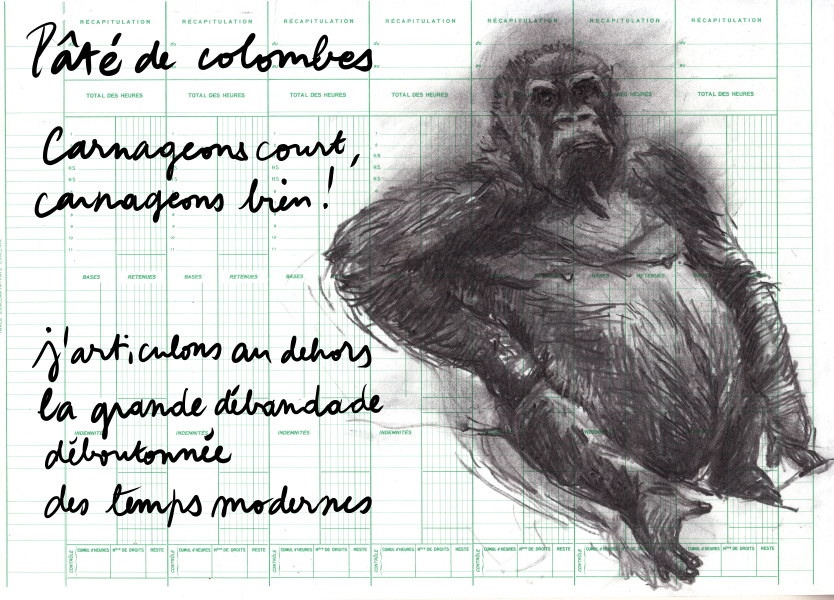 RÉCAPITULATION RÉCAPITULATION RÉCAPITULATION RÉCAPITULATION RÉCAPITULATION RÉCAPITULATION RÉCAPITULATION
Pâté de colombes
du du du du
au au au au
TOTAL DES HEURES TOTAL DES HEURES TOTAL DES HEURES TOTAL DES HEURES TOTAL DES HEURES TOTAL DES HEURES
Carnageons court,
carnageons bien !
BASES RETENUES BASES RETENUES BASES BASES RETENUES
j'articulons au dehors
la grande débandade
INDEMNITÉS INDEMNITÉS INDEMNITÉS INDEMNITÉS
déboutonnée
des temps modernes
CONTRÔLE CUMUL d'HEURES Nbre DE DROITS RESTE CONTRÔLE CUMUL d'HEURES Nbre DE DROITS RESTE CONTRÔLE CUMUL d'HEURES Nbre DE DROITS RESTE CONTRÔLE CUMUL d'HEURES Nbre DE DROITS RESTE CONTRÔLE CUMUL d'HEURES Nbre DE DROITS RESTE CONTRÔLE CUMUL d'HEURES RESTE CONTRÔLE CUMUL d'HEURES Nbre DE DROITS RESTE